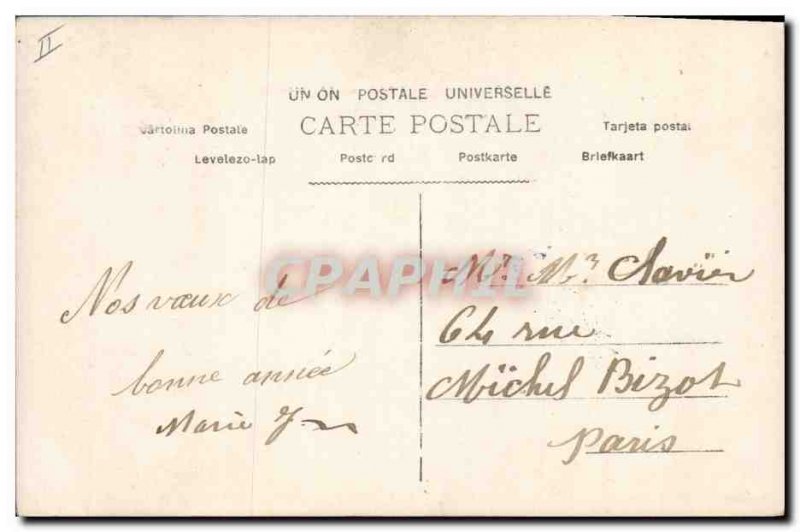 II
UNION POSTALE UNIVERSELLE
CARTE POSTALE
Cartolina Postale
Tarjeta postal
Levelezo-lap
Postcard
Postkarte
Briefkaart
CPAPHIL
Nos vœux de
bonne année
Marie
Mr. Mr. Clavier
64 rue
Michel Bizot
Paris